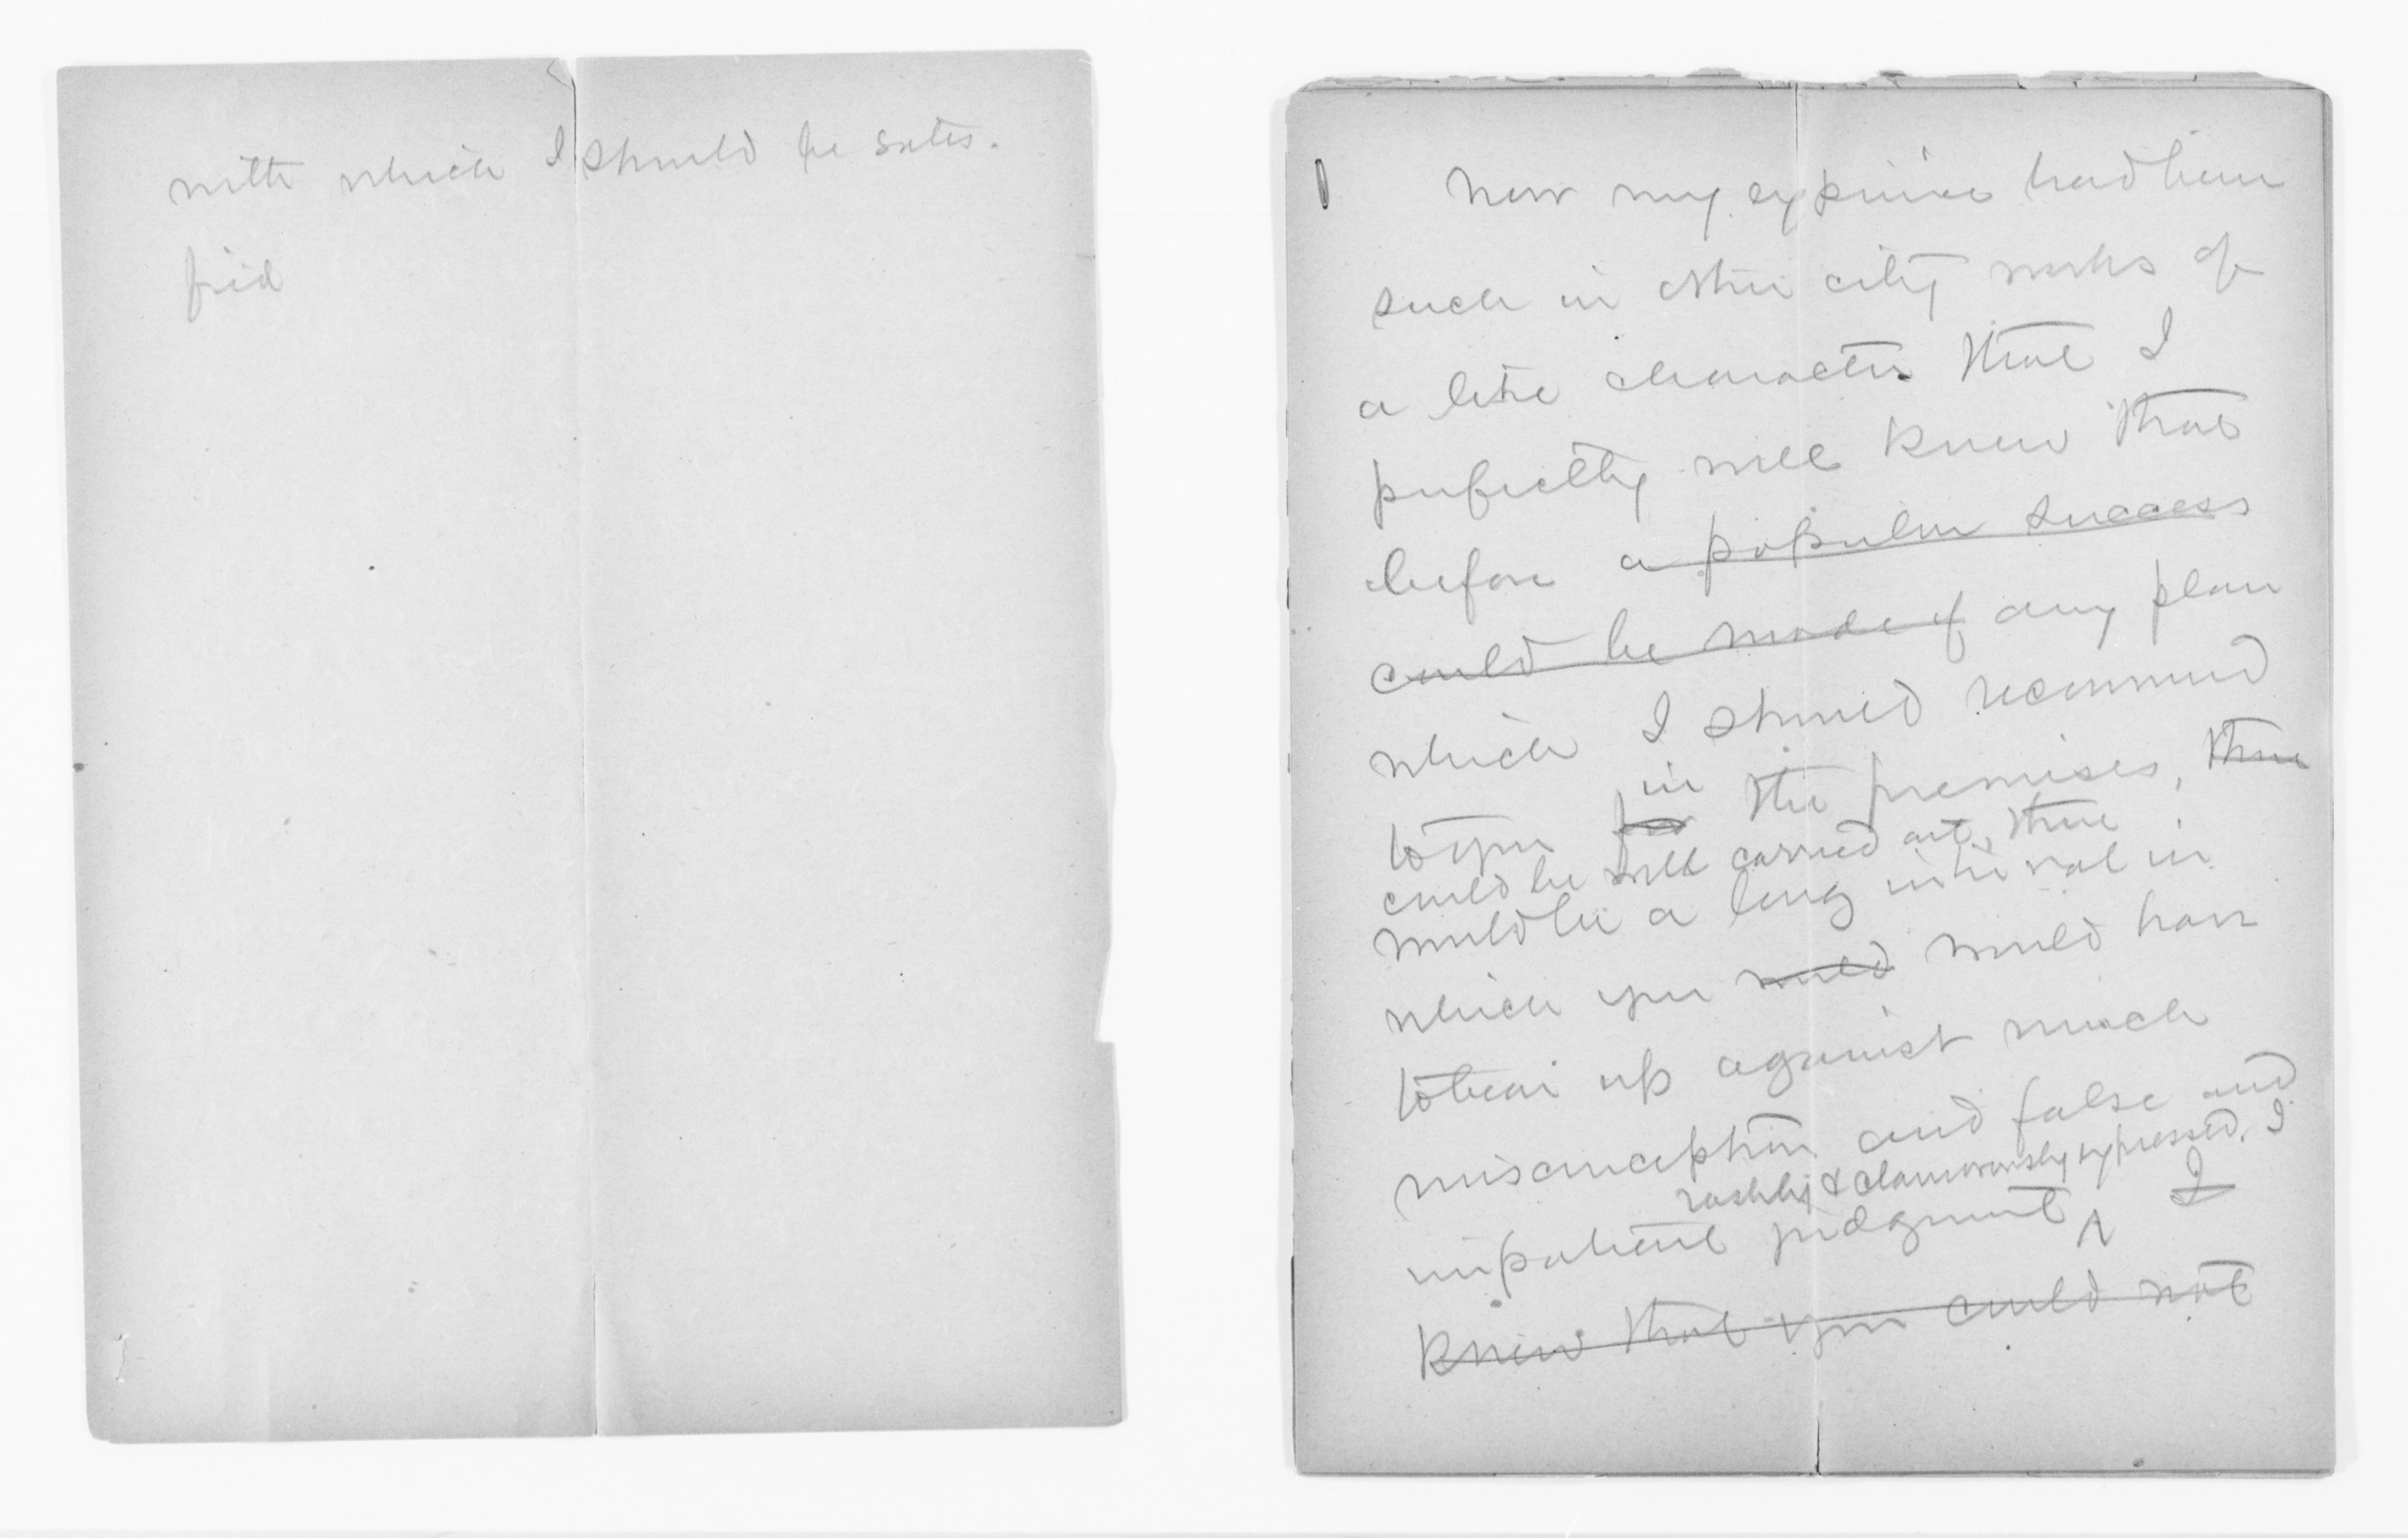 with which I should be satis-
fied
Now my experience had been
such in other city works of
a like character that I
perfectly well knew that
before a popular success
could be made of any plan
which I should recommend
in
to you for the premises, there
could be well carried out, there
would be a long interval in
which you would would have
to bear up against much
misconception and false and
rashly & clamorously expressed. I
impatient judgment ^ I
knew that you could not